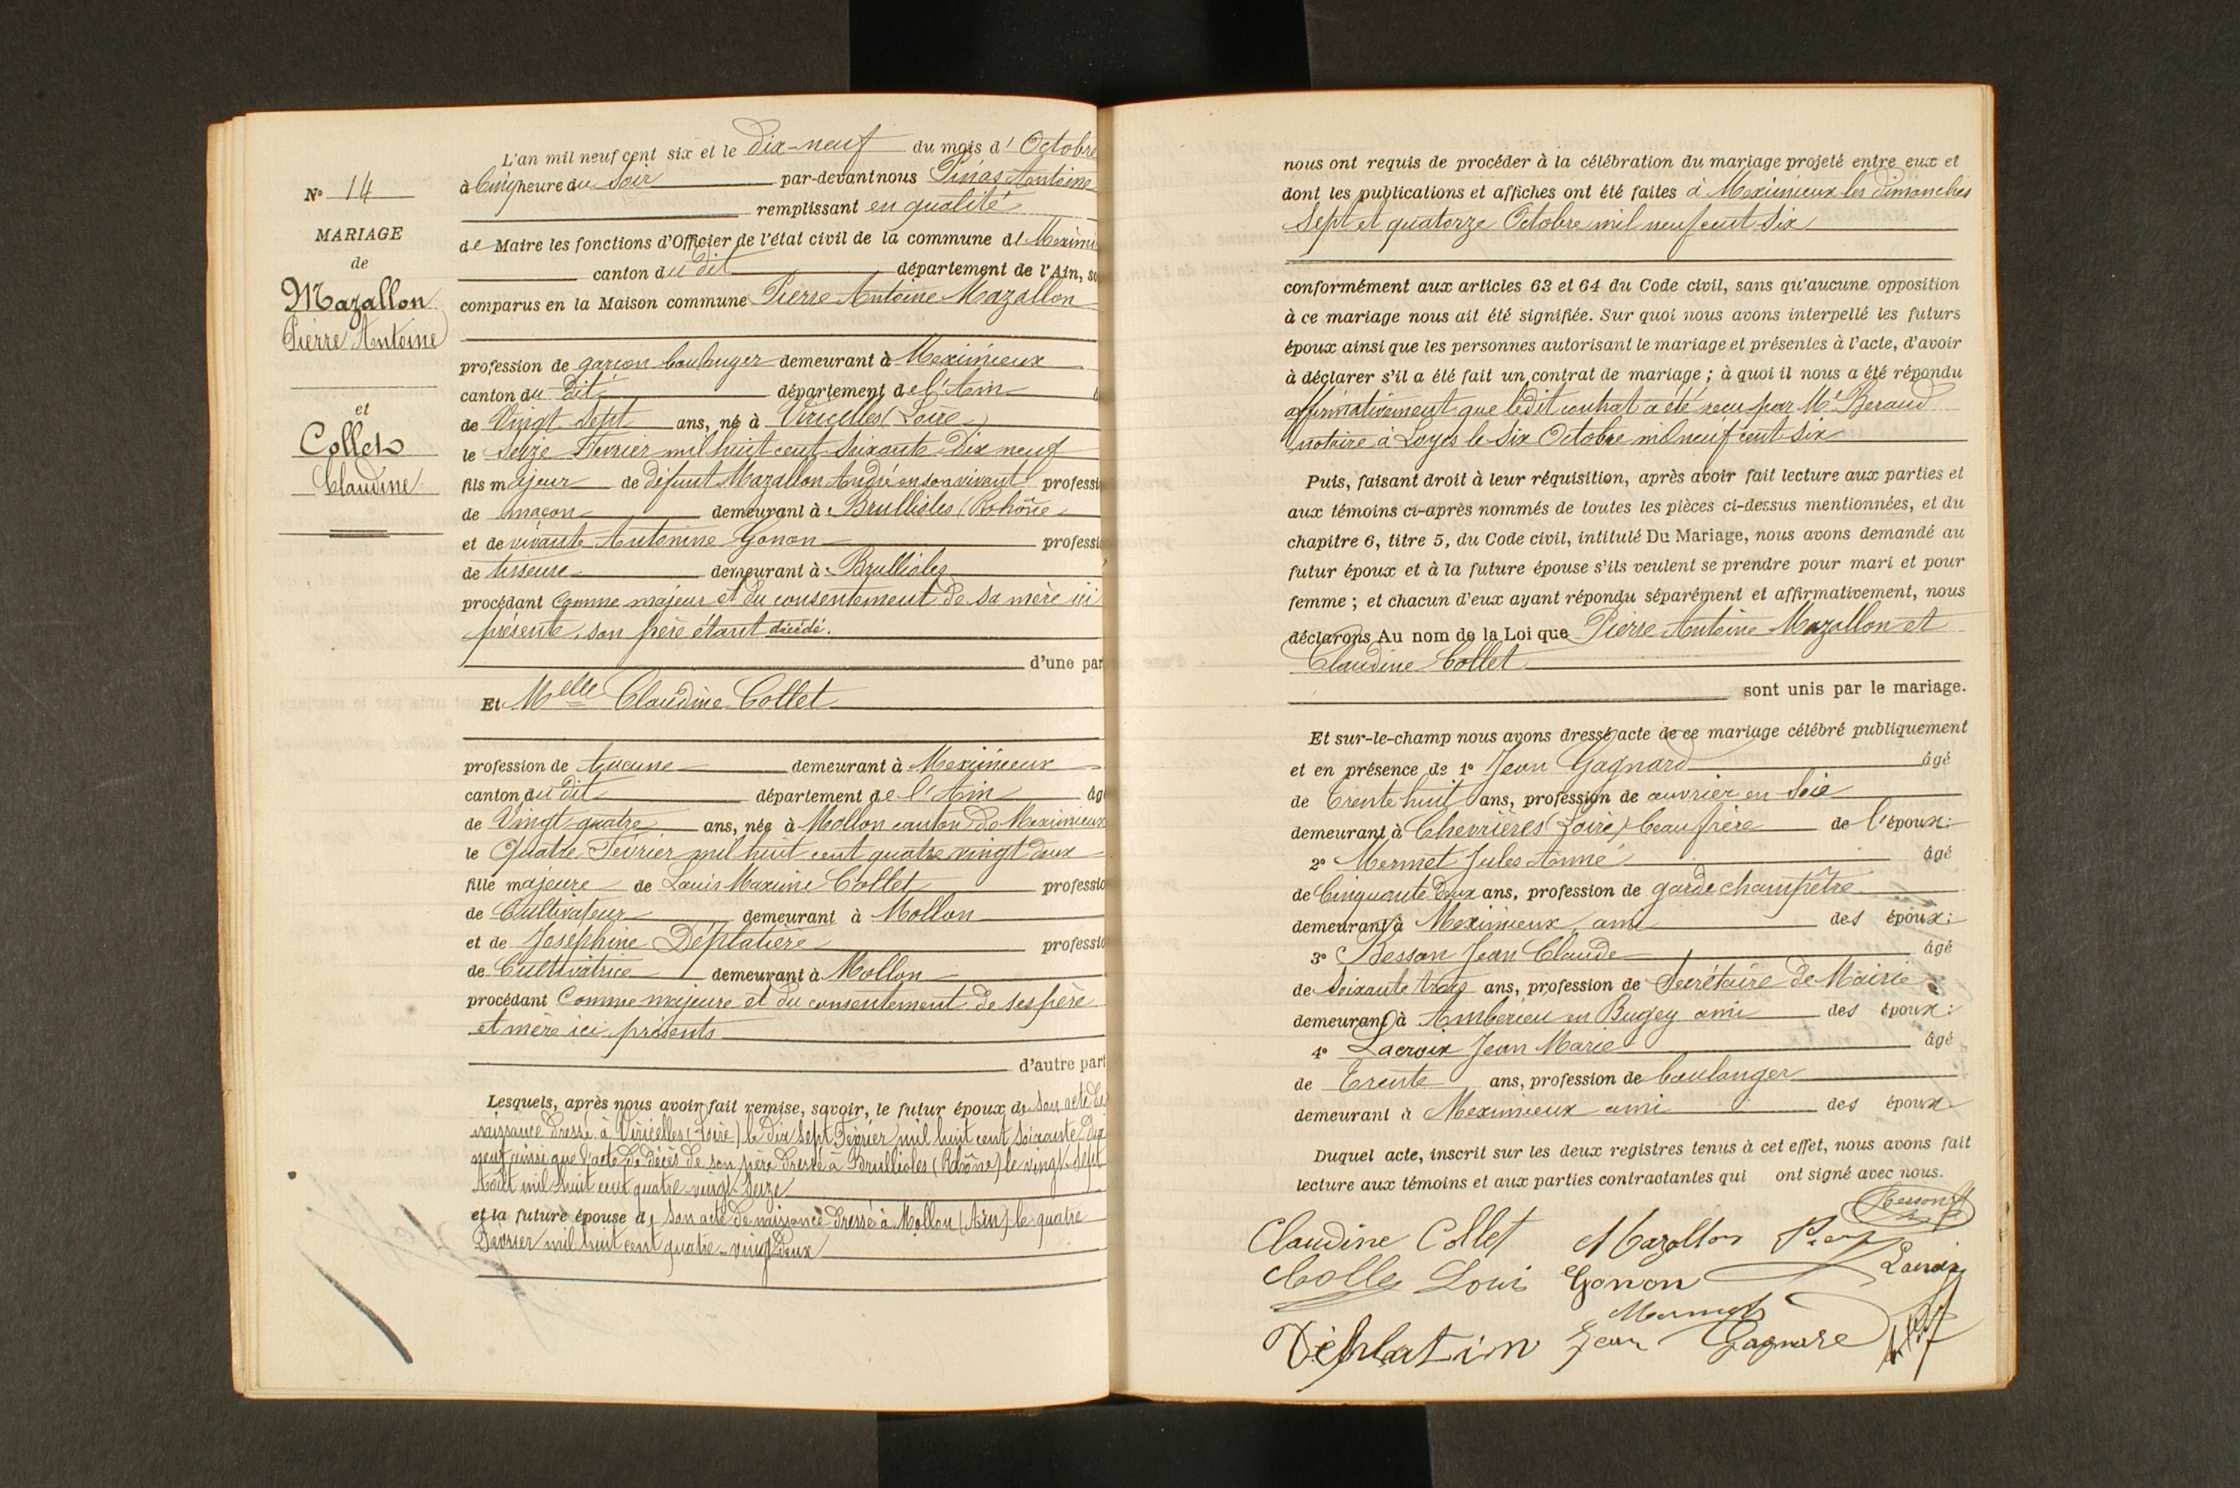 N° 14
MARIAGE
de
Mazallon
Pierre Antoine
et
Collet
Claudine
L'an mil neuf cent six et le Dix-neuf du mois d'Octobre
à Cinq heure du Soir par-devant nous Pinas Antoine
remplissant en qualité
de Maire les fonctions d'Officier de l'état civil de la commune de Meximi
canton du dit département de l'Ain, so
comparus en la Maison commune Pierre Antoine Mazallon
profession de garçon boulanger demeurant à Meximieux
canton du dit département de l'Ain
de Vingt Sept ans, né à Viricelles (Loire)
le Seize Fevrier mil huit cent Soixante Dix neuf
fils majeur de défunt Mazallon André en son vivant professi
de maçon demeurant à Brullioles (Rohône
et de vivante Antonine Gonon professi
de tisseuse demeurant à Brullioles
procédant Comme majeur et du consentement de sa mère ici
présente, son père étant décédé.
d'une par
Et Melle Claudine Collet
profession de Aucune demeurant à Meximieux
canton du dit département de l'Ain âg
de Vingt quatre ans, née à Mollon canton de Meximieux
le Quatre Fevrier mil huit cent quatre vingt deux
fille majeure de Louis Maxime Collet professio
de Cultivateur demeurant à Mollon
et de Joséphine Déplatière professio
de Cultivatrice demeurant à Mollon
procédant Comme majeure et du consentement de ses père
et mère ici présents
d'autre part
Lesquels, après nous avoir fait remise, savoir, le futur époux de son acte de
naissance dressé à Viricelles (Loire) le dix Sept Fevrier mil huit cent Soixante Dix
neuf ainsi que l'acte de décès de son père dressé à Brullioles (Rhône) le vingt Sept
Août mil huit cent quatre-vingt-Seize
et la future épouse de Son acte de naissance dressé à Mollon (Ain) le quatre
Fevrier mil huit cent quatre-vingt deux
nous ont requis de procéder à la célébration du mariage projeté entre eux et
dont les publications et affiches ont été faites à Meximieux les dimanches
Sept et quatorze Octobre mil neuf cent Six
conformément aux articles 63 et 64 du Code civil, sans qu'aucune opposition
à ce mariage nous ait été signifiée. Sur quoi nous avons interpellé les futurs
époux ainsi que les personnes autorisant le mariage et présentes à l'acte, d'avoir
à déclarer s'il a été fait un contrat de mariage ; à quoi il nous a été répondu
affirmativement que ledit contrat a été reçu par Me Beraud
notaire à Loyes le Six Octobre mil neuf cent Six
Puis, faisant droit à leur réquisition, après avoir fait lecture aux parties et
aux témoins ci-après nommés de toutes les pièces ci-dessus mentionnées, et du
chapitre 6, titre 5, du Code civil, intitulé Du Mariage, nous avons demandé au
futur époux et à la future épouse s'ils veulent se prendre pour mari et pour
femme ; et chacun d'eux ayant répondu séparément et affirmativement, nous
déclarons Au nom de la Loi que Pierre Antoine Mazallon et
Claudine Collet
sont unis par le mariage.
Et sur-le-champ nous avons dressé acte de ce mariage célébré publiquement
et en présence de 1° Jean Gagnard âgé
de Trente huit ans, profession de ouvrier en Soie
demeurant à Chevrières (Loire) beau frère de l'époux:
2° Mermet Jules Aimé âgé
de Cinquante deux ans, profession de garde champêtre
demeurant à Meximieux ami des époux:
3° Besson Jean Claude âgé
de Soixante trois ans, profession de Secrétaire de Mairie
demeurant à Ambérieu en Bugey ami des époux:
4° Lacroix Jean Marie âgé
de Trente ans, profession de boulanger
demeurant à Meximieux ami des époux
Duquel acte, inscrit sur les deux registres tenus à cet effet, nous avons fait
lecture aux témoins et aux parties contractantes qui ont signé avec nous.
Besson
Claudine Collet Mazallon
Collet Louis Gonon Lacroix
Mermet
Déplatin Jean Gagnare